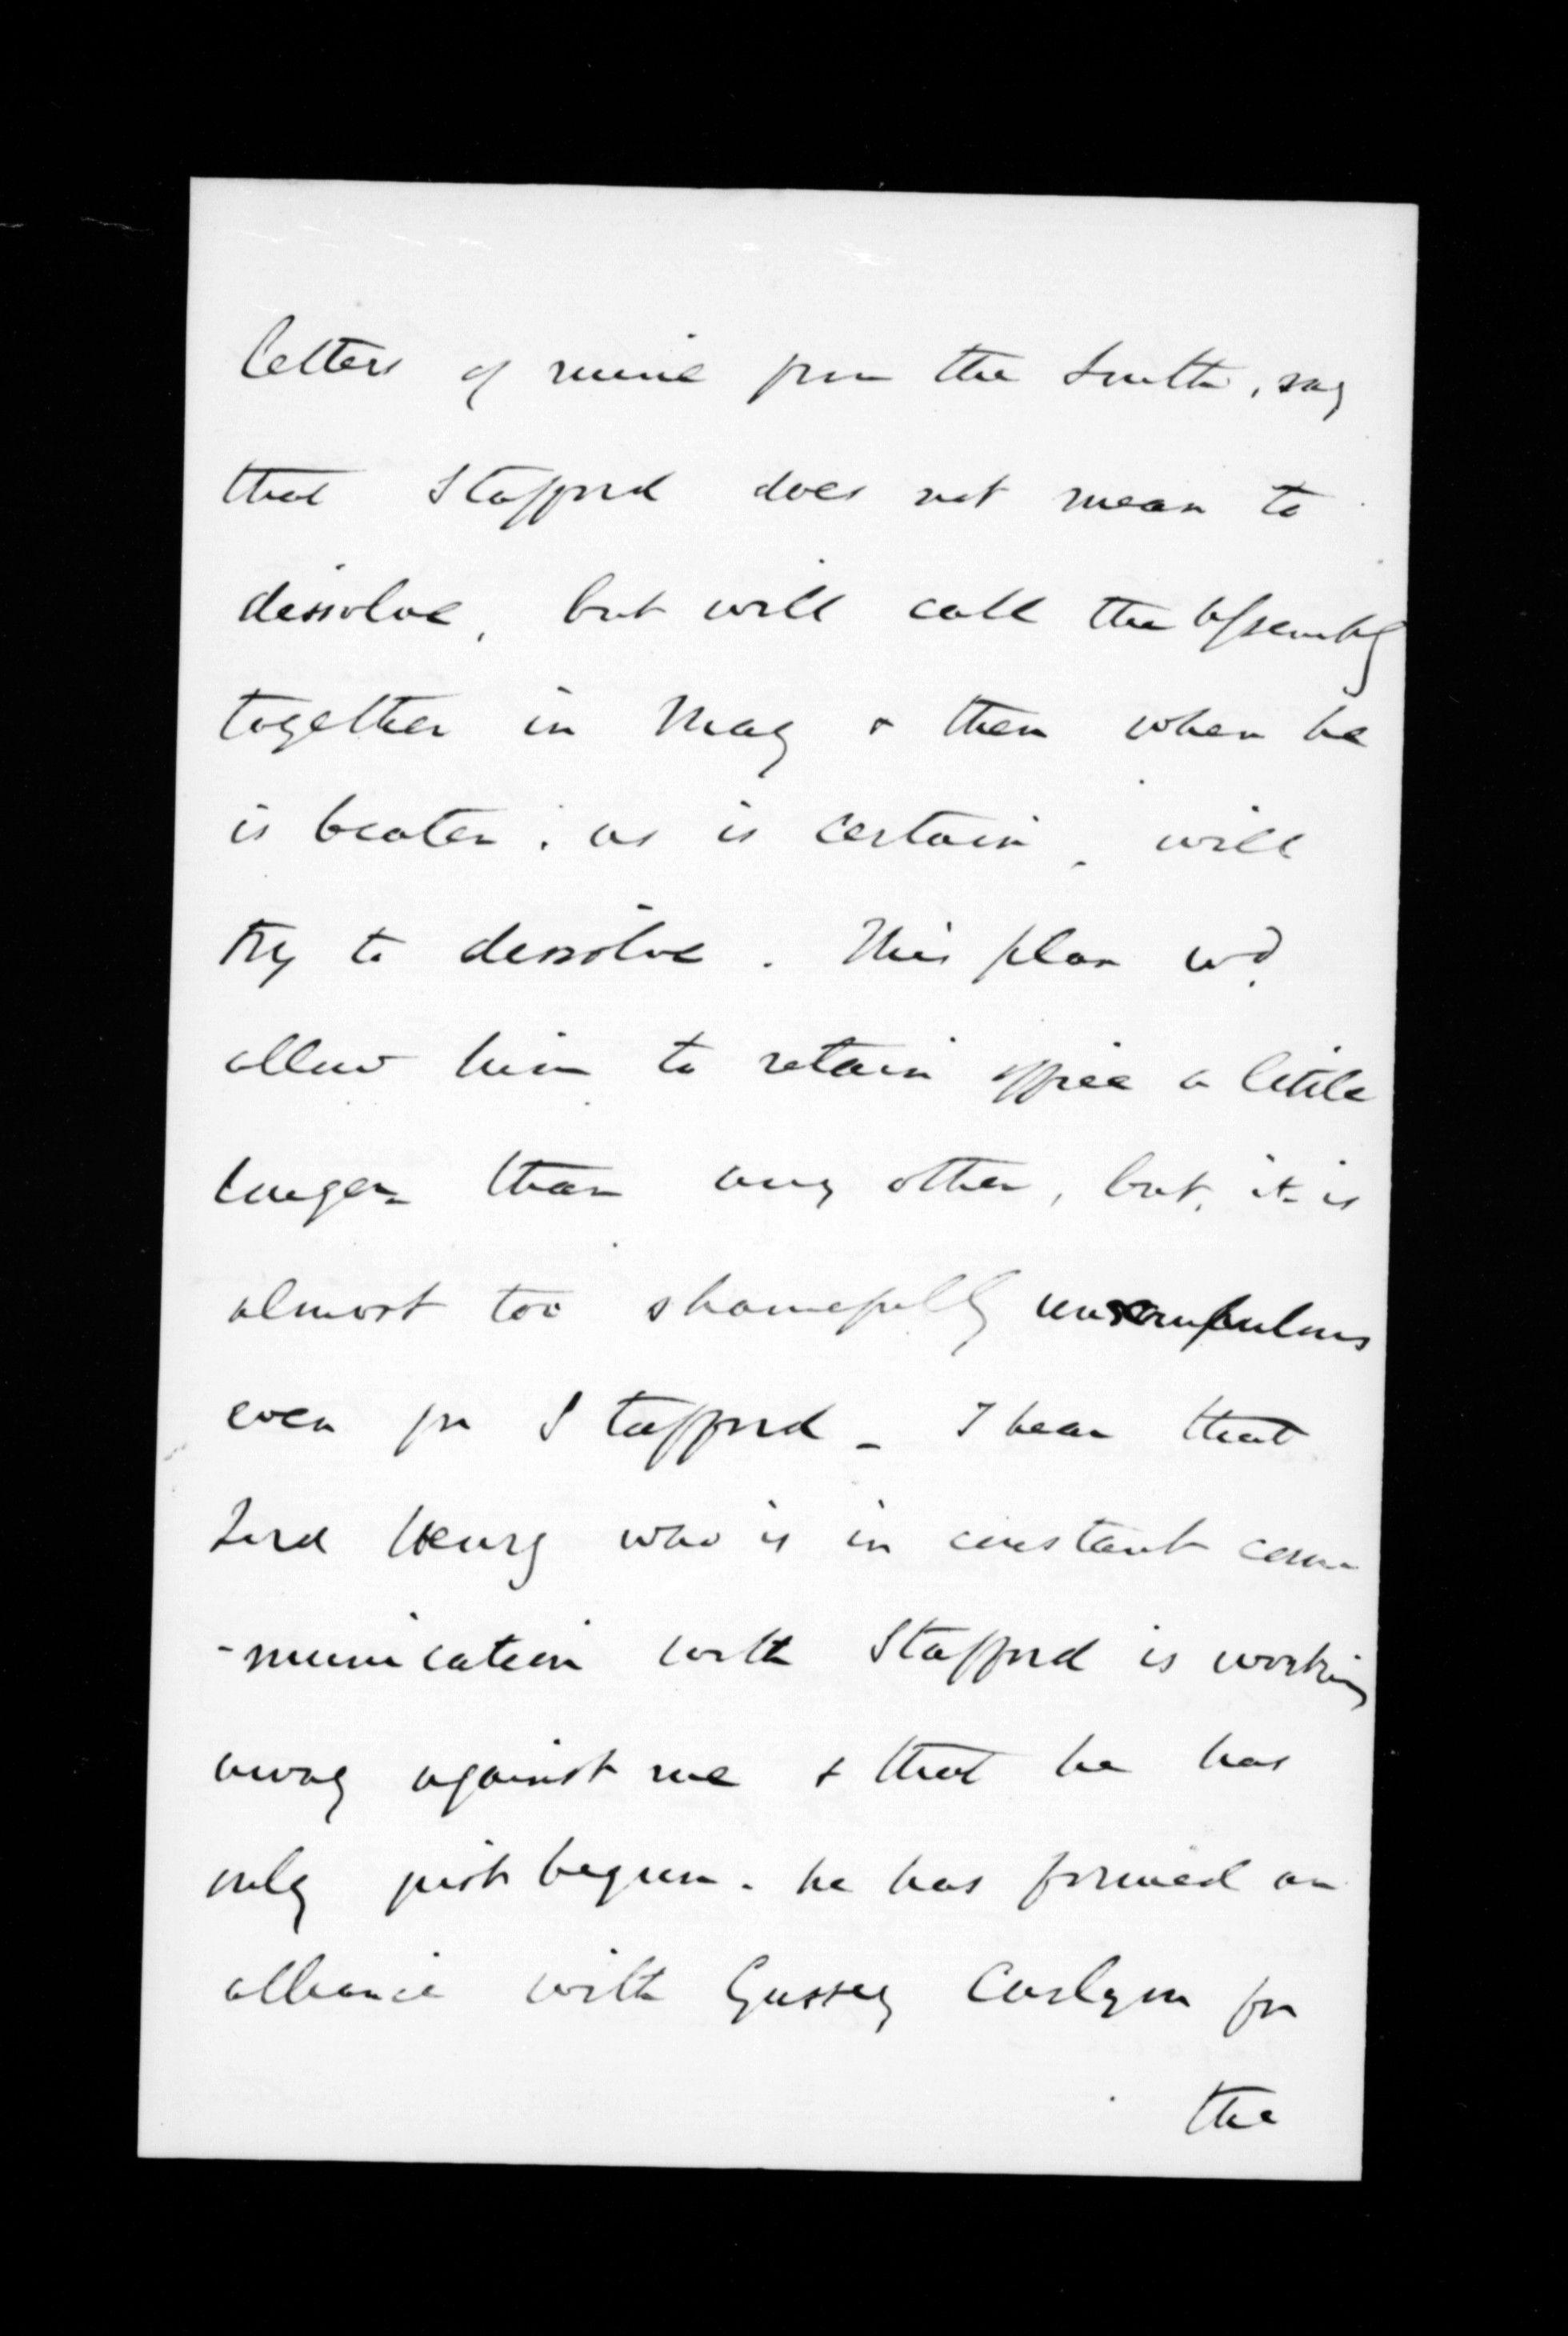 letters of mine from the South, say
that Stafford does not mean to
dissolve, but will call the Assembly
together in May & then when he
is beaten, as is certain, will
try to dissolve. This plan wd.
allow him to retain office a little
longer than any other, but, it is
almost too shamefully unscrupulous
even for Stafford_ I hear that
Lord Henry who is in constant com
-munication with Stafford is working
away against me & that he has
only just begun. he has formed an
alliance with Gussey for
the